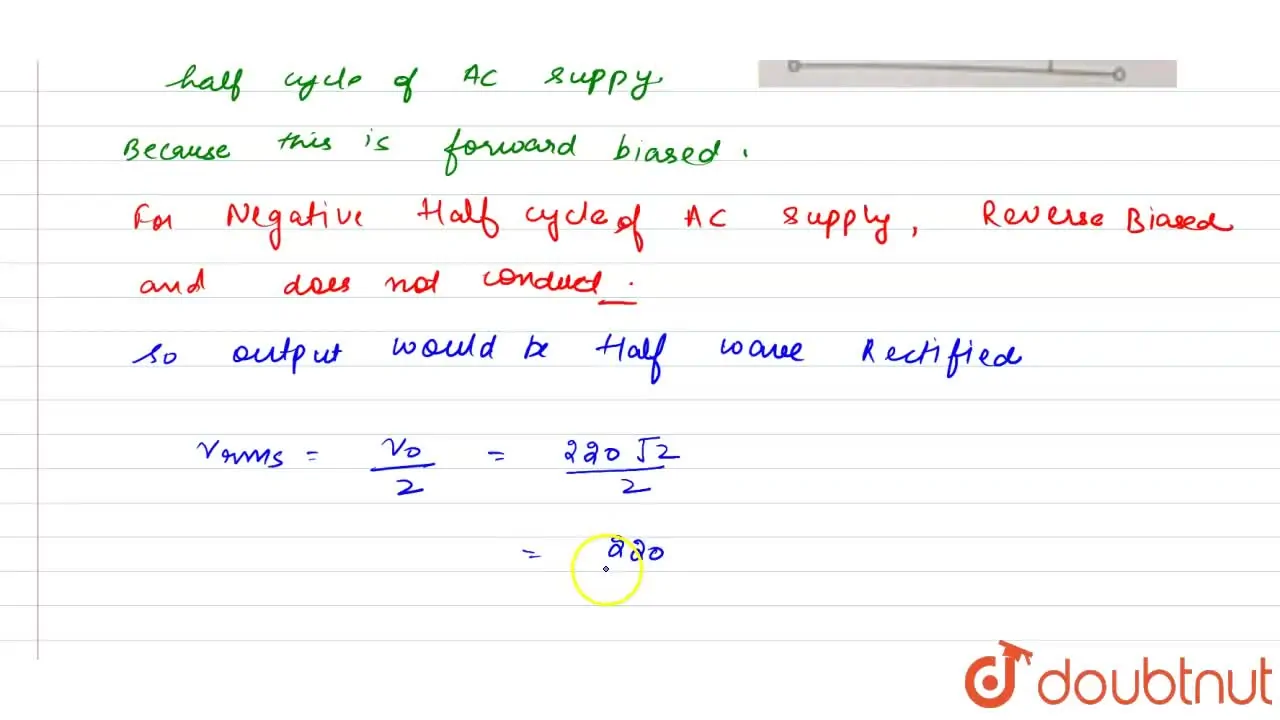 half cycle of AC suppy
Because this is forward biased.
For Negative Half cycle of AC supply, Reverse Biased
and does not conduct.
so output would be Half wave Rectified
Vrms = V0/2 = 220√2/2
= 220
doubtnut